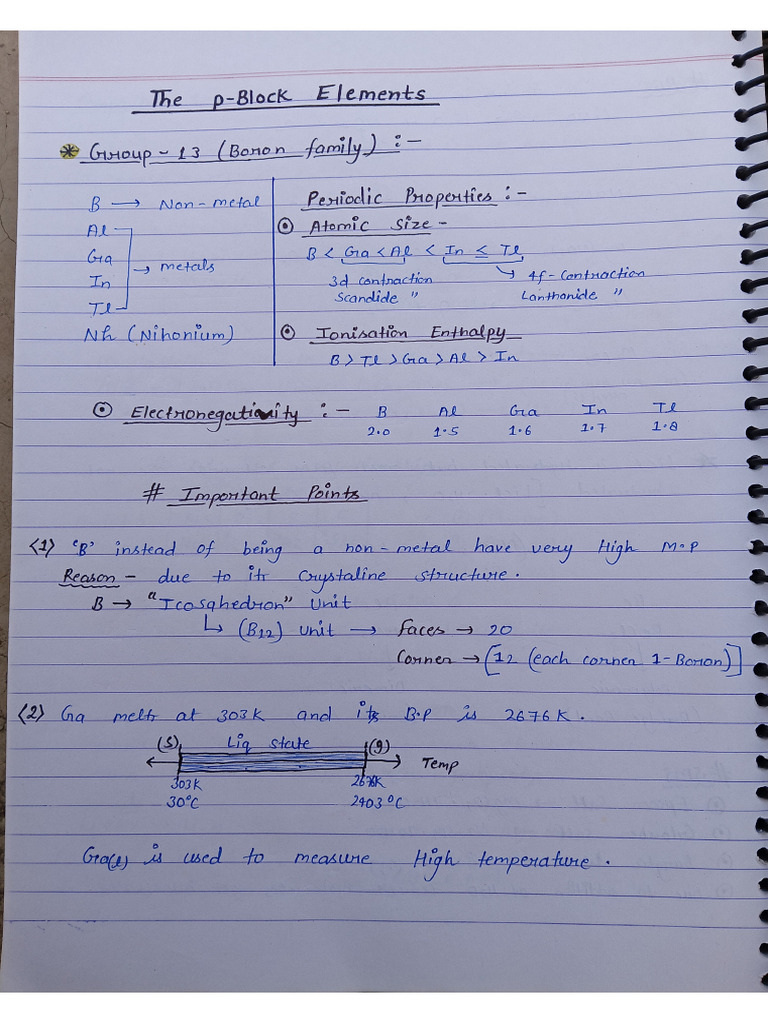 The p-Block Elements
* Group - 13 (Boron family) :-
B → Non-metal
Al
Ga
In
Tl
→ metals
Nh (Nihonium)
Periodic Properties :-
Atomic Size -
B < Ga < Al < In ≤ Tl
3d contraction
Scandide "
4f - Contraction
Lanthonide "
Ionisation Enthalpy
B > Tl > Ga > Al > In
Electronegativity :- B Al Ga In Tl
2.0 1.5 1.6 1.7 1.8
# Important Points
<1> 'B' instead of being a non-metal have very High M.P
Reason - due to its crystaline structure.
B → "Icosahedron" Unit
↳ (B12) unit → Faces → 20
Corner → [12 (each corner 1-Boron)]
<2> Ga melts at 303K and its B.P is 2676K.
(S) Liq state (g)
Temp
303K 2676K
30°C 2403°C
Ga(l) is used to measure High temperature.